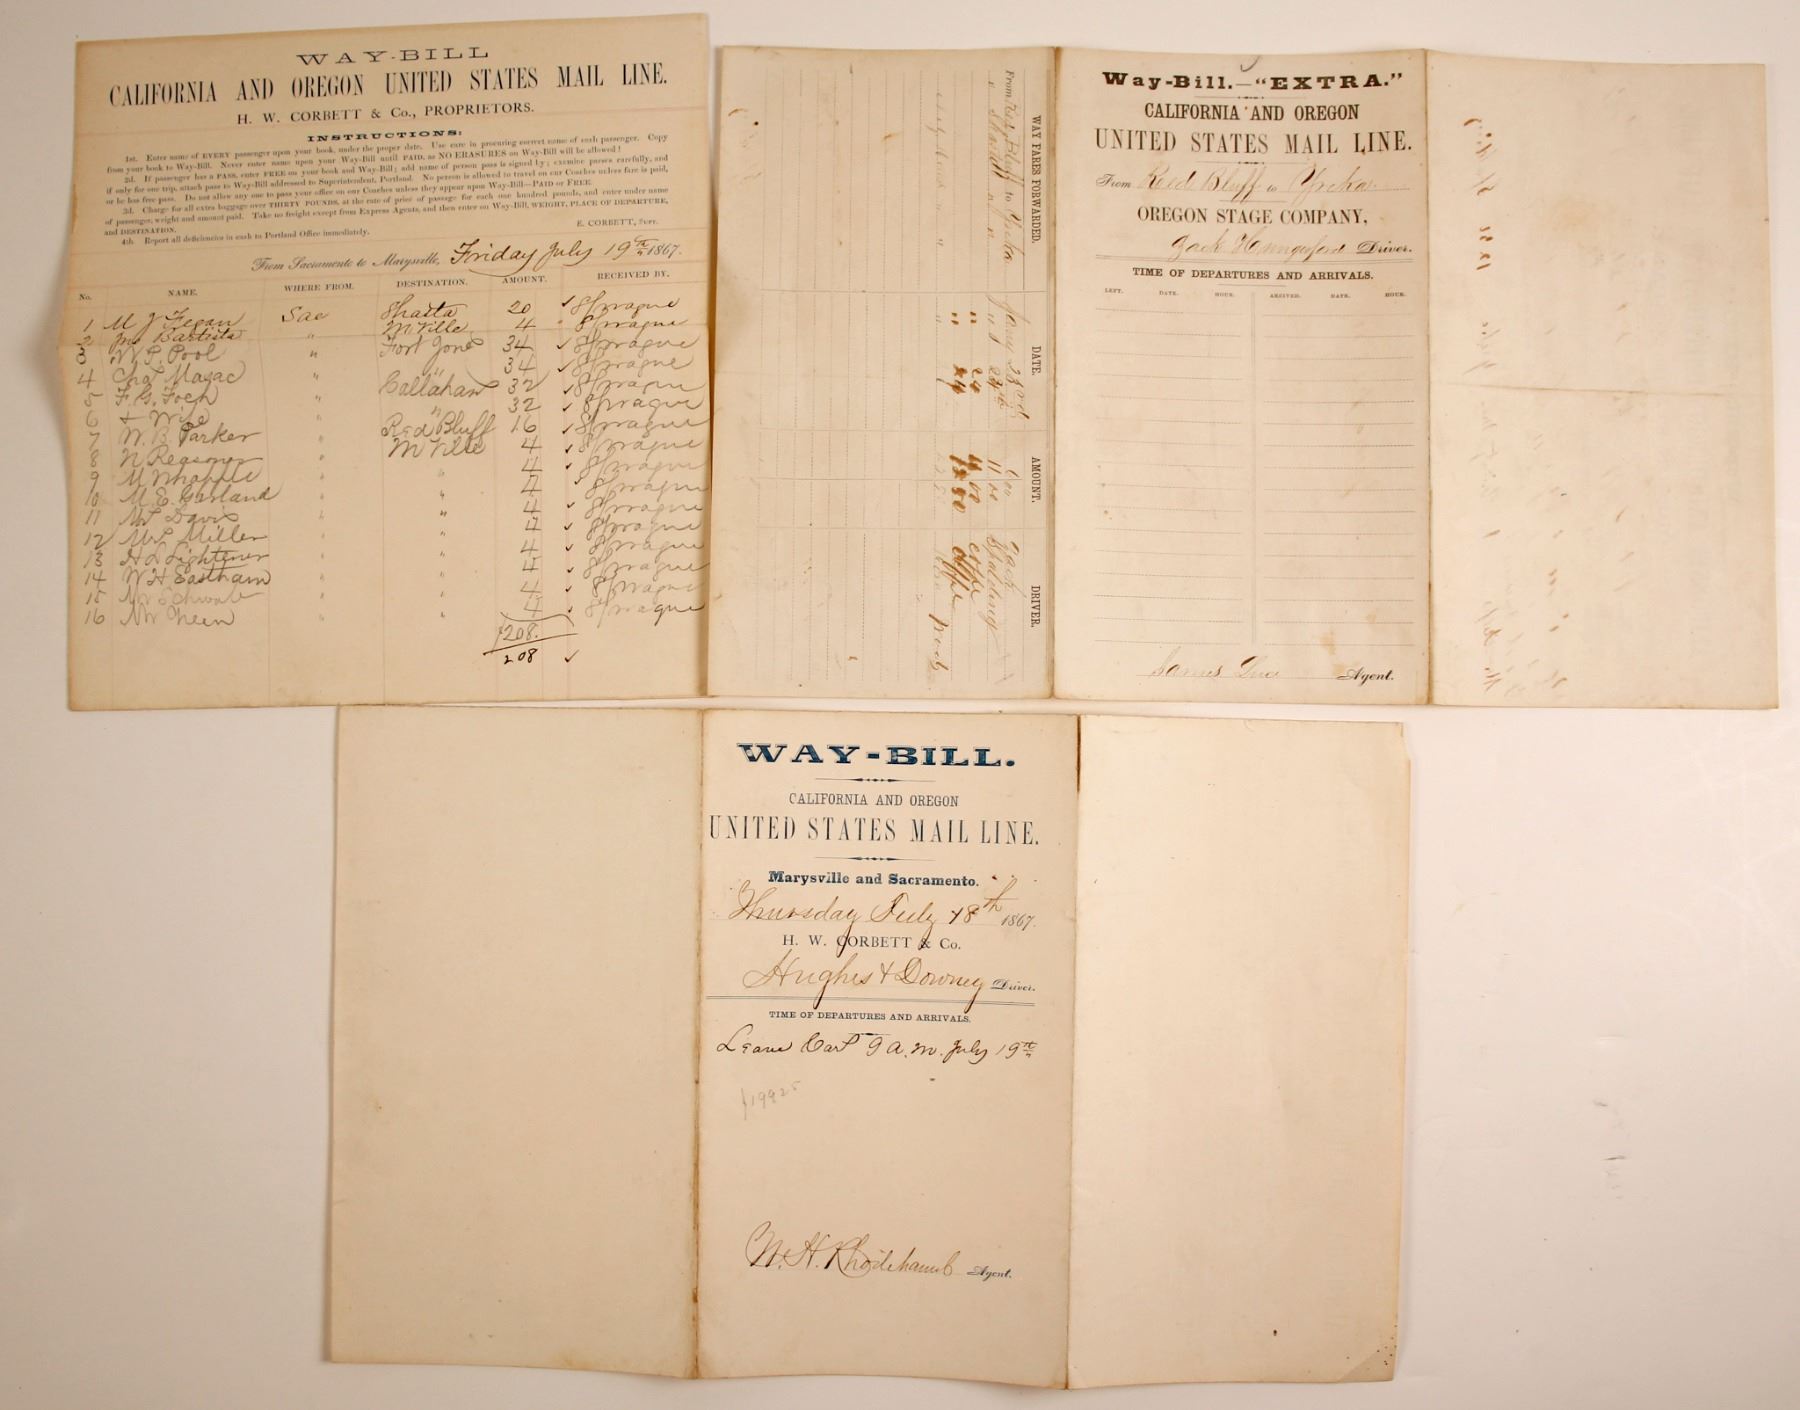 WAY-BILL
CALIFORNIA AND OREGON UNITED STATES MAIL LINE.
H. W. CORBETT & Co., PROPRIETORS.
INSTRUCTIONS:
1st. Enter name of EVERY passenger upon your book, under the proper date. Use care in procuring correct name of each passenger. Copy
from your book to Way-Bill. Never enter name upon your Way-Bill until PAID, as NO ERASURES on Way-Bill will be allowed!
2d. If passenger has a PASS, enter FREE on your book and Way-Bill; add name of person pass is signed by; examine passes carefully, and
if only for one trip, attach pass to Way-Bill addressed to Superintendent, Portland. No person is allowed to travel on our Coaches unless fare is paid,
or he has free pass. Do not allow any one to pass your office on our Coaches unless they appear upon Way-Bill—PAID or FREE.
3d. Charge for all extra baggage over THIRTY POUNDS, at the rate of price of passage for each one hundred pounds, and enter under name
of passenger, weight and amount paid. Take no freight except from Express Agents, and then enter on Way-Bill, WEIGHT, PLACE OF DEPARTURE,
and DESTINATION.
4th. Report all deficiencies in cash to Portland Office immediately.
E. CORBETT, Supt.
From Sacramento to Marysville, Friday July 19th 1867.
No. NAME. WHERE FROM. DESTINATION. AMOUNT. RECEIVED BY.
1 M J Fegan Sac Shasta 20 Sprague
2 Jno Bartista " MVille 4 Sprague
3 W. P. Pool " Fort Jones 34 Sprague
4 Chas Mazac " " 34 Sprague
5 F. G. Foch " Callahans 32 Sprague
6 & Wife " " 32 Sprague
7 W. B. Parker " Red Bluff 16 Sprague
8 N Reasoner " MVille 4 Sprague
9 M " " 4 Sprague
10 M. E. Garland " " 4 Sprague
11 Mrs Davis " " 4 Sprague
12 Mrs Miller " " 4 Sprague
13 H L Lightener " " 4 Sprague
14 W H Eastham " " 4 Sprague
15 Mr Schwab " " 4 Sprague
16 Mr Neen " " 4 Sprague
$208.
208
WAY FARES FORWARDED. DATE. AMOUNT. DRIVER.
From Red Bluff to Yreka June 23rd Zack
" Shasta " " " 24th 11 00 Spalding
" 24 4 00 Offe
" 24 12 50 Offe
Way-Bill.—"EXTRA."
CALIFORNIA AND OREGON
UNITED STATES MAIL LINE.
From Red Bluff to Yreka
OREGON STAGE COMPANY,
Zack Hungerford Driver.
TIME OF DEPARTURES AND ARRIVALS.
LEFT. DATE. HOUR. ARRIVED. DATE. HOUR.
James Agent.
WAY-BILL.
CALIFORNIA AND OREGON
UNITED STATES MAIL LINE.
Marysville and Sacramento.
Thursday July 18th 1867.
H. W. CORBETT & Co.
Hughes & Downey Driver.
TIME OF DEPARTURES AND ARRIVALS.
Leave 9 a.m. July 19th
$19925
W. H. Rhodehamb Agent.